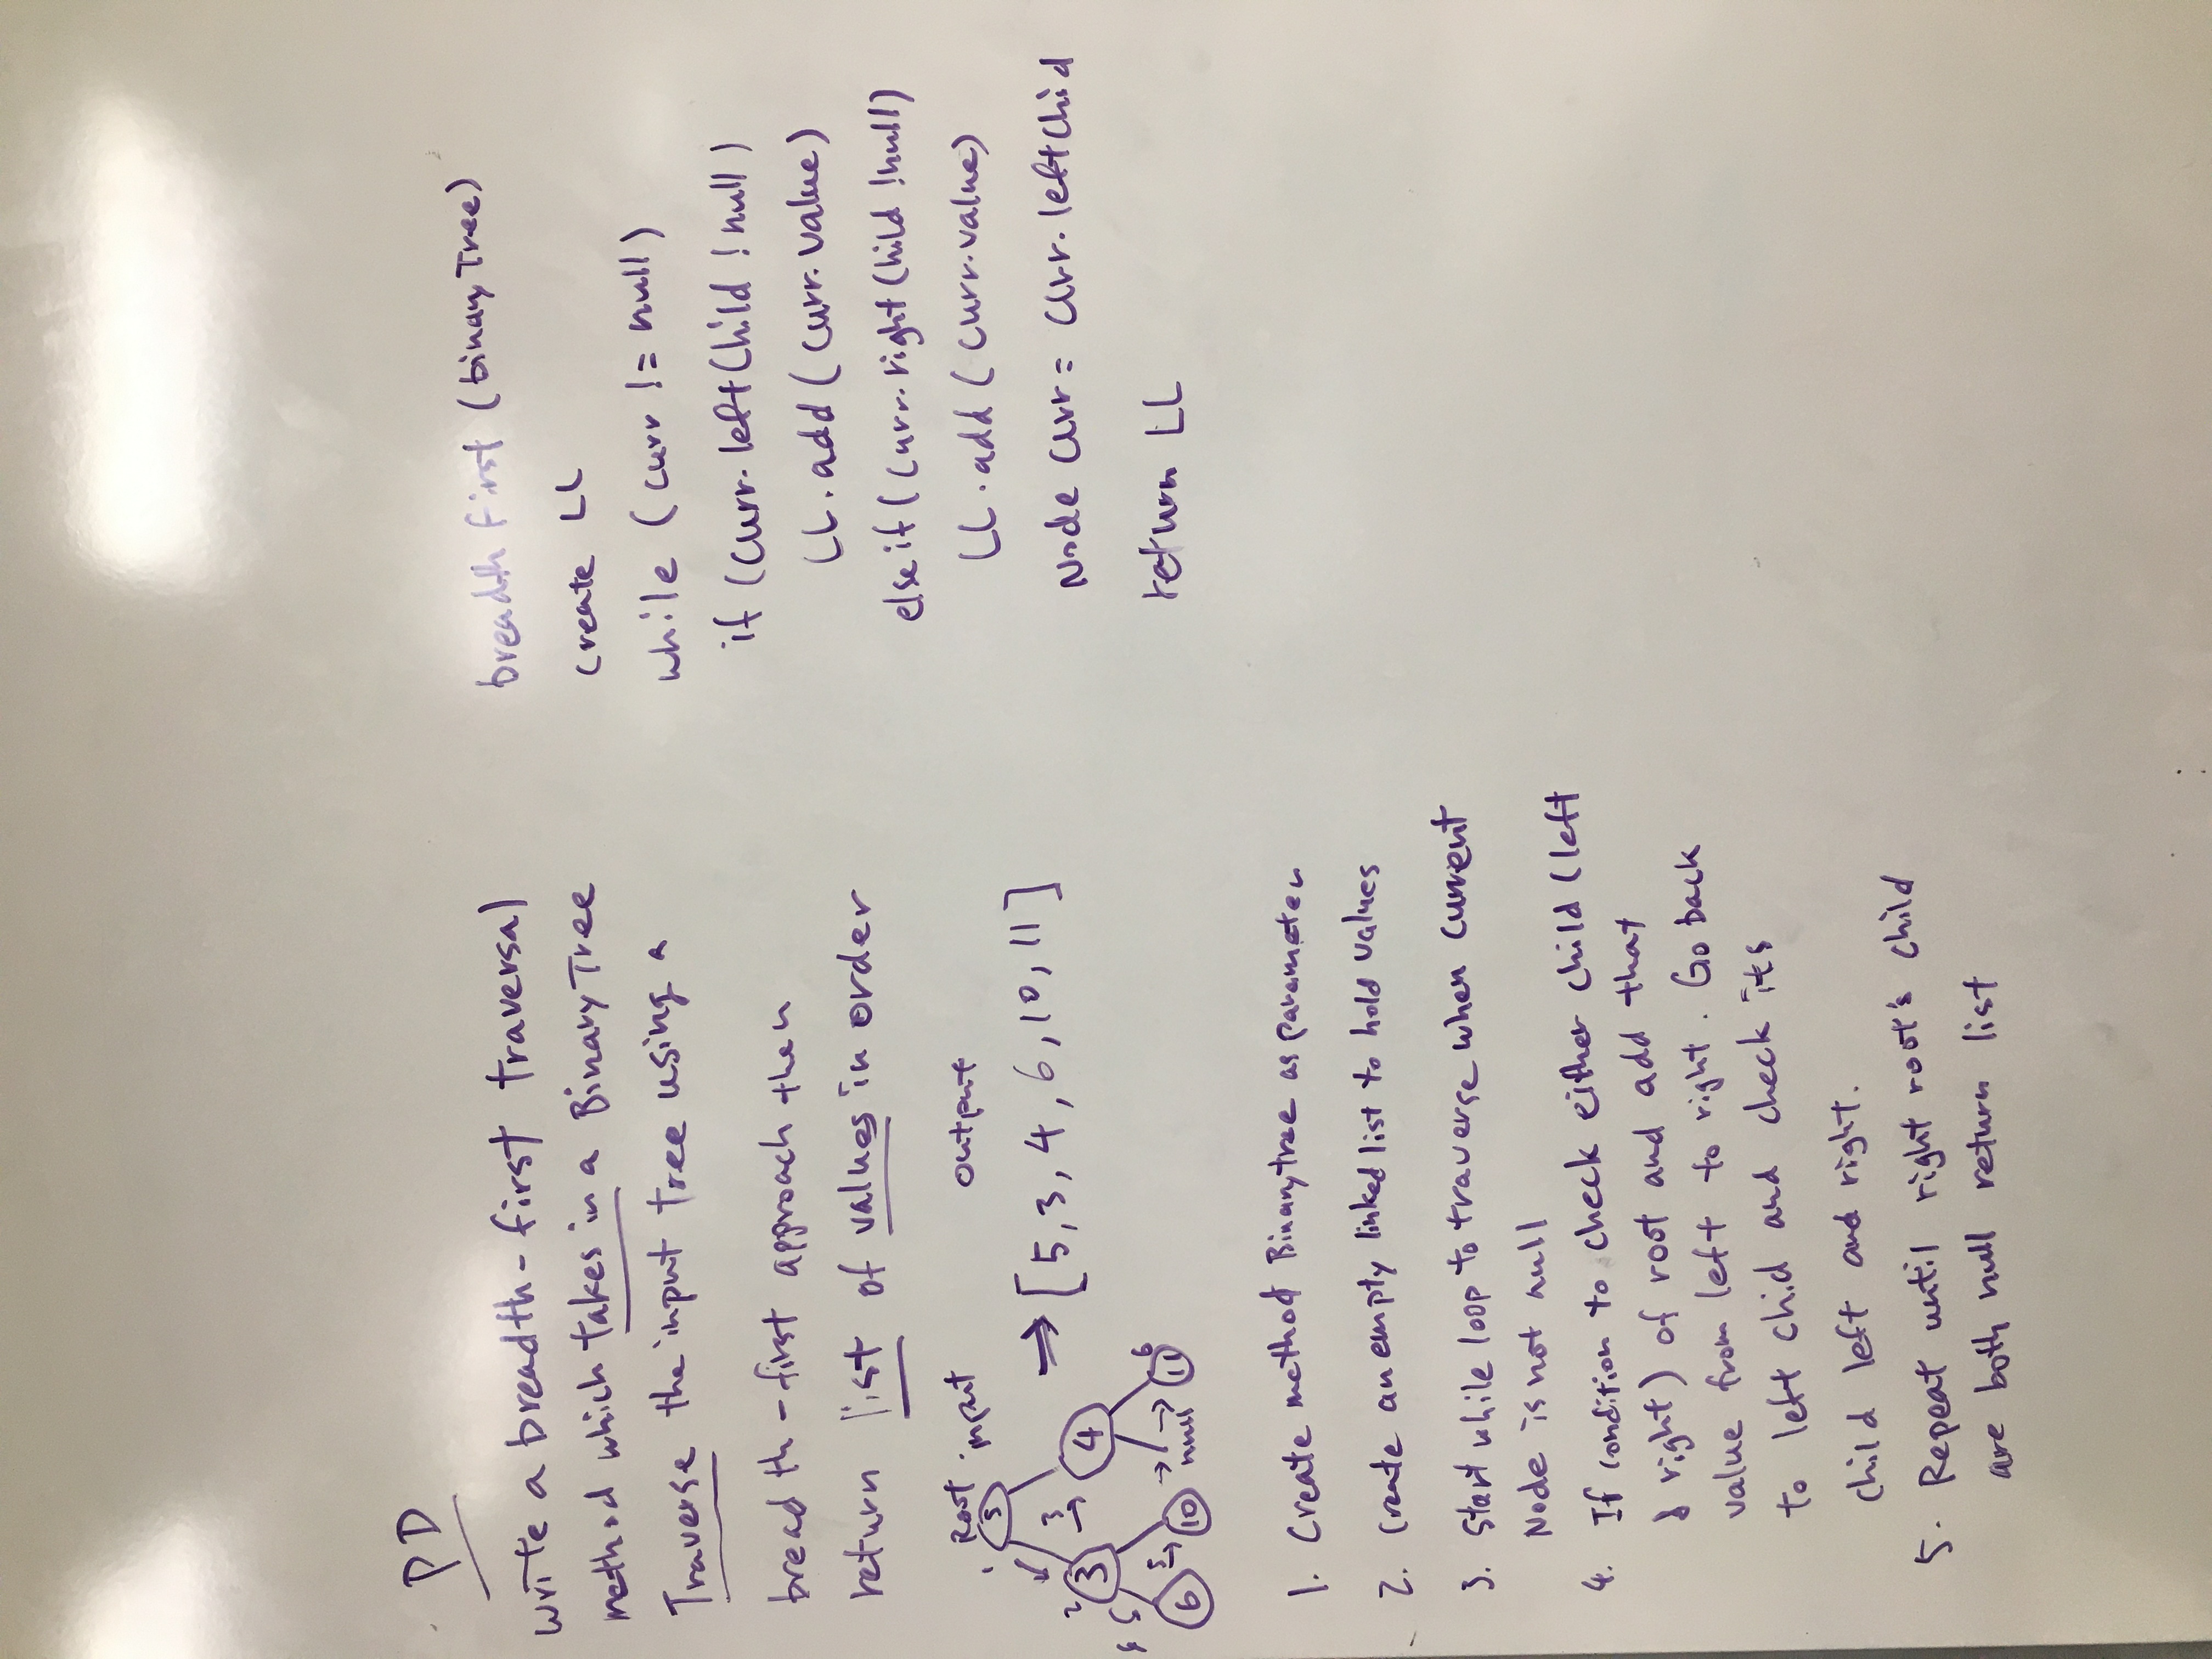 PD
write a breadth-first traversal
method which takes in a BinaryTree
Traverse the input tree using a
breadth-first approach then
return list of values in order
Root input output
1 5
2 3 3 4
⇒ [5, 3, 4, 6, 10, 11]
6 5 10 null 11 6
1. Create method Binarytree as parameter
2. Create an empty linked list to hold values
3. Start while loop to traverse when current
Node is not null
4. If condition to check either child (left
& right) of root and add that
value from left to right. Go back
to left chid and check its
child left and right.
5. Repeat until right root's child
are both null return list
breadth first (binaryTree)
create LL
while (curr != null)
if (curr.leftChild !null)
LL.add(curr.value)
else if (curr.rightChild !null)
LL.add(curr.value)
Node curr = curr.leftChid
return LL